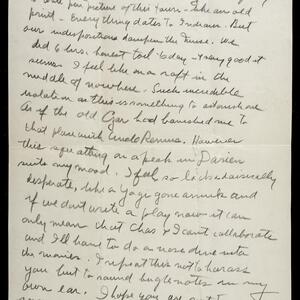 a pen picture of this town - Like an old
print - Everything dates to Indians. But
our indispositions dampen the Muse. We
did 6 hrs. honest toil today - & very good it
seems. I feel like on a raft in the
middle of nowhere - Such incredible
isolation as this is something to astonish one
As if the old Czar had banished me to
that place with Uncle Remus. However
this squatting on a peak in Darien
suits my mood. I feel so
desperate, like a Yogi gone amuk and
if we don't write a play now it can
only mean that Chas & I can't collaborate
and I'll have to do a nose dive into
the movies. I repeat this not to harass
you but to sound bugle notes in my
own ear. I hope you are